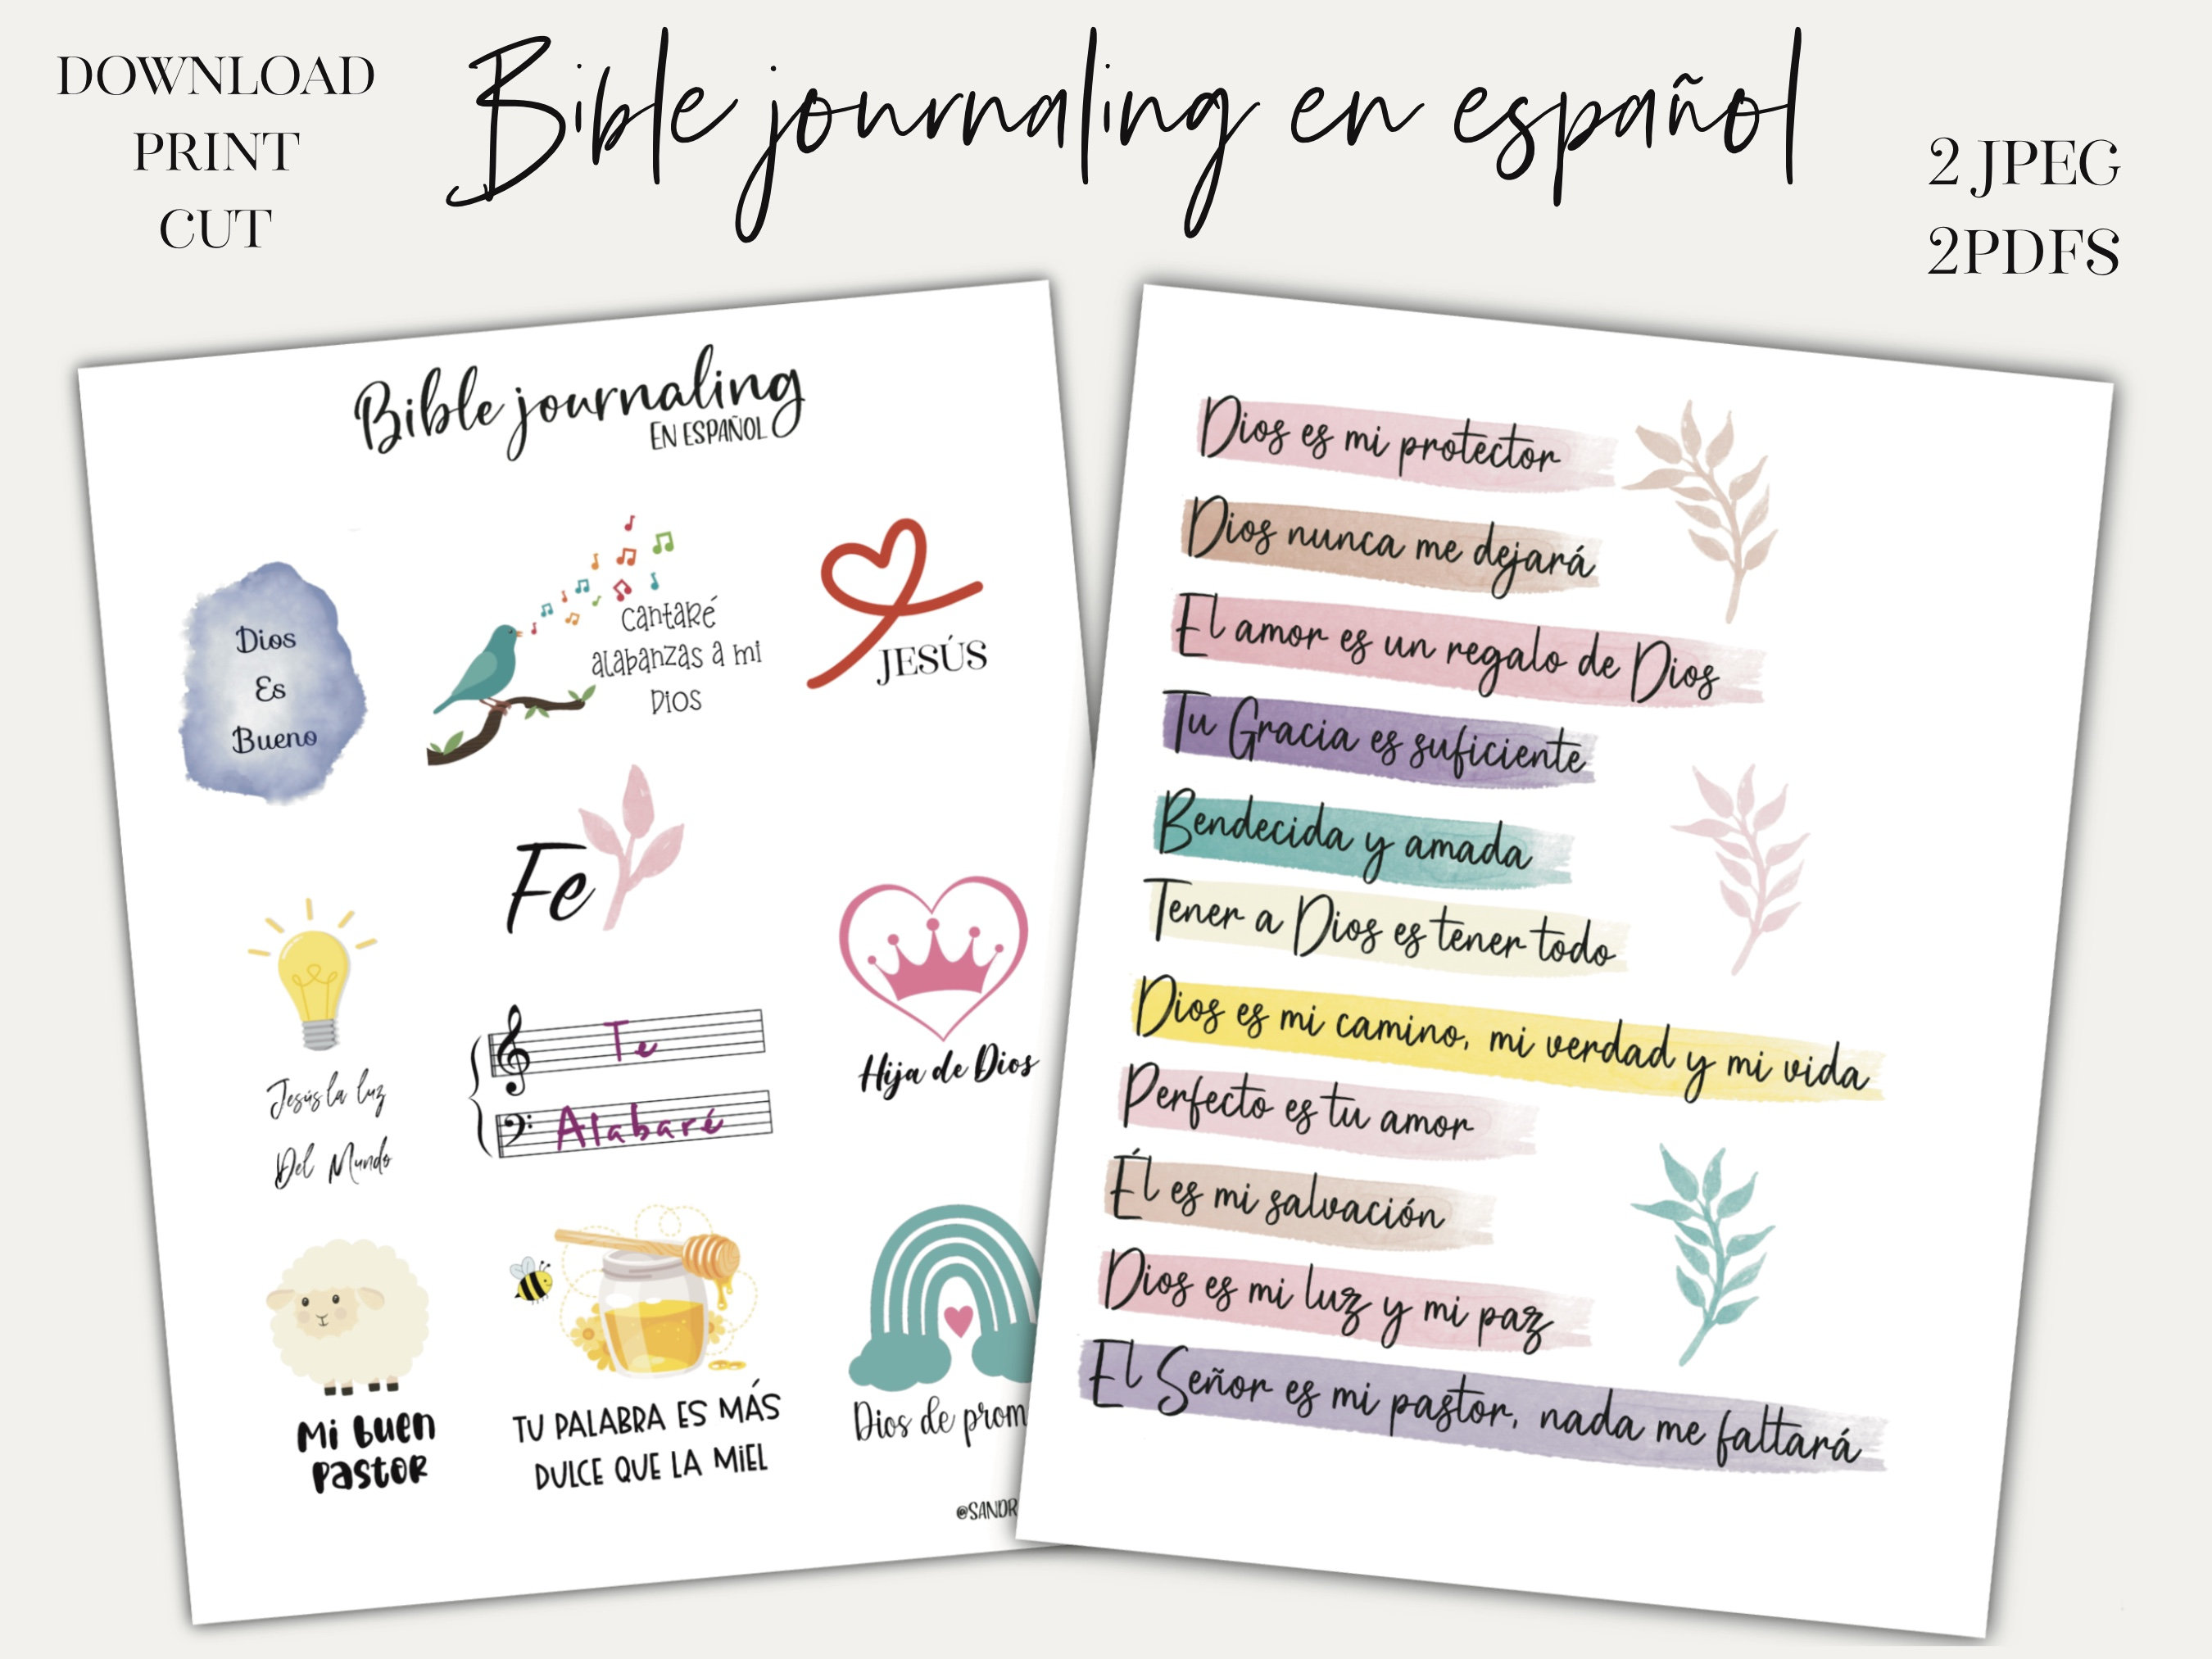 DOWNLOAD
PRINT
CUT
Bible journaling en español
2 JPEG
2PDFS
Bible journaling
EN ESPAÑOL
Dios
Es
Bueno
Cantaré
alabanzas a mi
Dios
JESÚS
Fe
Jesús la luz
Del Mundo
Te
Alabaré
Hija de Dios
Mi buen
pastor
TU PALABRA ES MÁS
DULCE QUE LA MIEL
Dios de
Dios es mi protector
Dios nunca me dejará
El amor es un regalo de Dios
Tu Gracia es suficiente
Bendecida y amada
Tener a Dios es tener todo
Dios es mi camino, mi verdad y mi vida
Perfecto es tu amor
Él es mi salvación
Dios es mi luz y mi paz
El Señor es mi pastor, nada me faltará